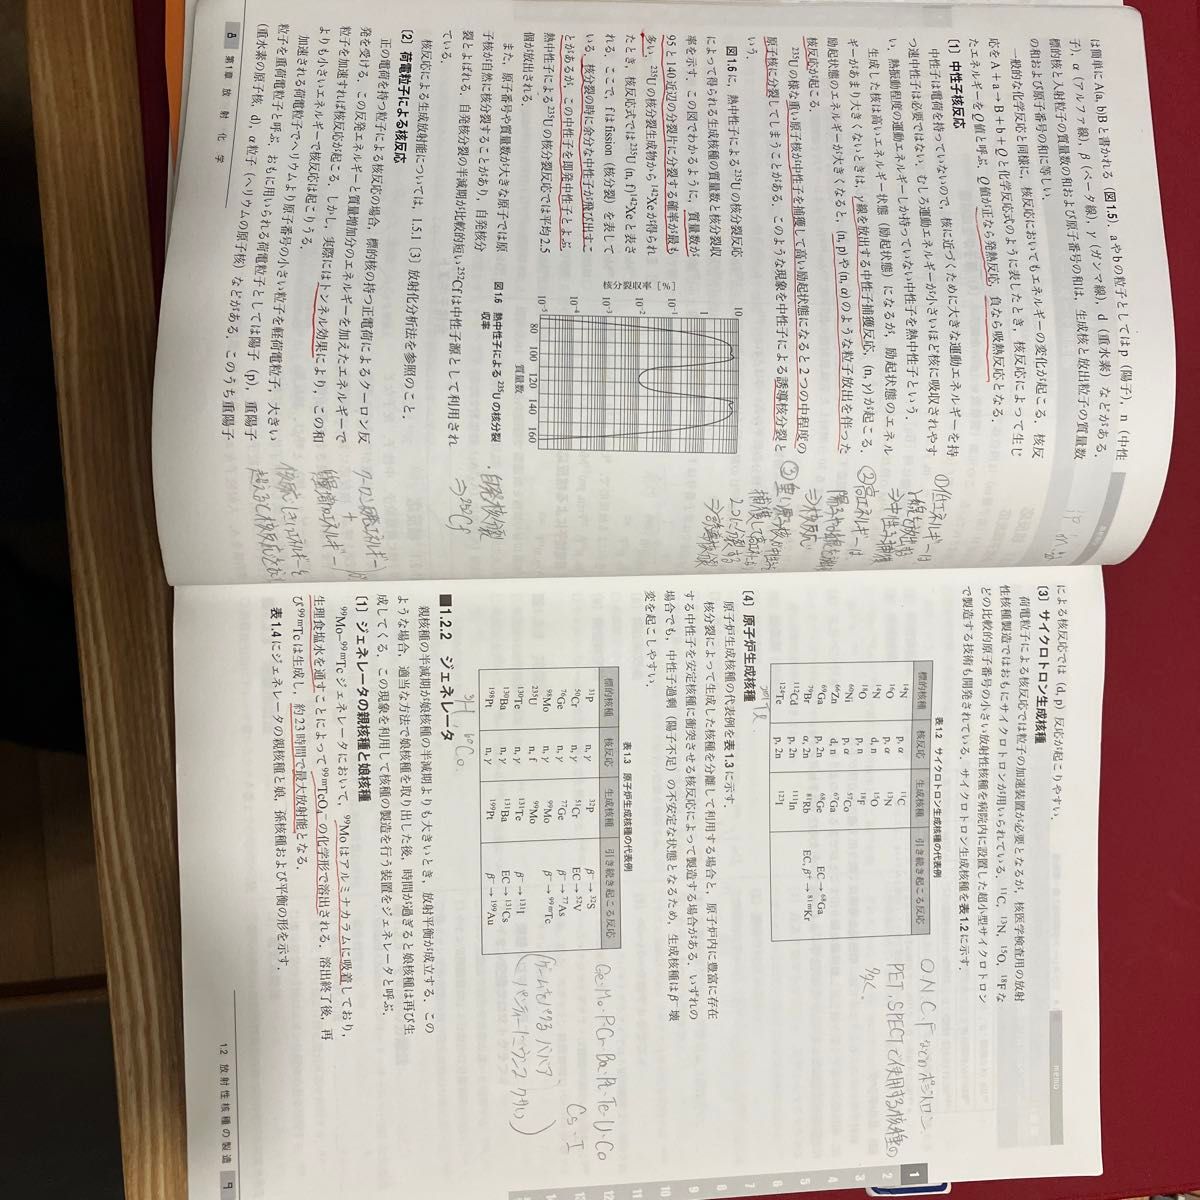 は簡単に A(a, b)B と書かれる（図1.5）. a や b の粒子としては p（陽子），n（中性
子），α（アルファ線），β（ベータ線），γ（ガンマ線），d（重水素）などがある．
標的核と入射粒子の質量数の和および原子番号の和は，生成核と放出粒子の質量数
の和および原子番号の和に等しい．
一般的な化学反応と同様に，核反応においてもエネルギーの変化が起こる．核反
応を A + a → B + b + Q と化学反応式のように表したとき，核反応によって生じ
たエネルギーを Q 値と呼ぶ．Q 値が正なら発熱反応，負なら吸熱反応となる．
〔1〕中性子核反応
中性子は電荷を持っていないので，核に近づくために大きな運動エネルギーを持
つ速中性子は必要ではない．むしろ運動エネルギーが小さいほど核に吸収されやす
い．熱振動程度の運動エネルギーしか持っていない中性子を熱中性子という．
生成した核は高いエネルギー状態（励起状態）になるが，励起状態のエネル
ギーがあまり大きくないときは，γ線を放出する中性子捕獲反応，(n, γ) が起こる．
励起状態のエネルギーが大きくなると，(n, p) や (n, α) のような粒子放出を伴った
核反応が起こる．
²³⁵U の様な重い原子核が中性子を捕獲して高い励起状態になると2つの中程度の
原子核に分裂してしまうことがある．このような現象を中性子による誘導核分裂と
いう．
図1.6に，熱中性子による ²³⁵U の核分裂反応
によって得られる生成核種の質量数と核分裂収
率を示す．この図でわかるように，質量数が
95 と 140 近辺の分裂片に分裂する確率が最も
多い．²³⁵U の核分裂生成物から ¹⁴²Xe が得られ
たとき，核反応式では ²³⁵U (n, f) ¹⁴²Xe と表さ
れる．ここで，f は fission（核分裂）を表して
いる．核分裂の時に余分な中性子が飛び出すこ
とがあるが，この中性子を即発中性子とよぶ．
熱中性子による ²³⁵U の核分裂反応では平均 2.5
個が放出される．
また，原子番号や質量数が大きな原子では原
子核が自然に核分裂することがあり，自発核分
裂とよばれる．自発核分裂の半減期が比較的短い ²⁵²Cf は中性子源として利用され
ている．
核分裂収率 [%]
10
1
10⁻¹
10⁻²
10⁻³
10⁻⁴
10⁻⁵
80 100 120 140 160
質量数
図1.6 熱中性子による ²³⁵U の核分裂
収率
核反応による生成放射能については，1.5.1〔3〕放射化分析法を参照のこと．
〔2〕荷電粒子による核反応
正の電荷を持つ粒子による核反応の場合，標的核の持つ正電荷によるクーロン反
発を受ける．この反発エネルギーと質量増加分のエネルギーを加えたエネルギーで
粒子を加速すれば核反応が起こる．しかし，実際にはトンネル効果により，この和
よりも小さいエネルギーで核反応は起こりうる．
加速される荷電粒子でヘリウムより原子番号の小さい粒子を軽荷電粒子，大きい
粒子を重荷電粒子と呼ぶ．おもに用いられる荷電粒子としては陽子（p），重陽子
（重水素の原子核，d），α粒子（ヘリウムの原子核）などがある．このうち重陽子
8 第1章 放射化学
①低エネルギーは
γ線を放出する
⇒中性子捕獲
②高エネルギーは
⇒核反応
③重い原子核が中性子
2つに分裂する
⇒誘導核分裂
・自発核分裂
⇒²⁵²Cf
クーロン反発エネルギー
+
による核反応では (d, p) 反応が起こりやすい．
〔3〕サイクロトロン生成核種
荷電粒子による核反応では粒子の加速装置が必要となるが，核医学検査用の放射
性核種製造ではおもにサイクロトロンが用いられている．¹¹C，¹³N，¹⁵O，¹⁸F な
どの比較的原子番号の小さい放射性核種を病院内に設置した超小型サイクロトロン
で製造する技術も開発されている．サイクロトロン生成核種を表1.2に示す．
表1.2 サイクロトロン生成核種の代表例
標的核種 核反応 生成核種 引き続き起こる反応
¹⁴N p, α ¹¹C
¹⁶O p, α ¹³N
¹⁴N d, n ¹⁵O
¹⁸O p, n ¹⁸F
⁶⁰Ni p, α ⁵⁷Co
⁶⁶Zn d, n ⁶⁷Ga
⁶⁹Ga p, 2n ⁶⁸Ge EC → ⁶⁸Ga
⁷⁹Br α, 2n ⁸¹Rb EC, β⁺ → ⁸¹ᵐKr
¹¹²Cd p, 2n ¹¹¹In
¹²⁴Te p, 2n ¹²³I
²⁰¹Tl
〔4〕原子炉生成核種
原子炉生成核種の代表例を表1.3に示す．
核分裂によって生成した核種を分離して利用する場合と，原子炉内に豊富に存在
する中性子を安定核種に衝突させる核反応によって製造する場合がある．いずれの
場合でも，中性子過剰（陽子不足）の不安定な状態となるため，生成核種はβ⁻壊
変を起こしやすい．
表1.3 原子炉生成核種の代表例
標的核種 核反応 生成核種 引き続き起こる反応
³¹P n, γ ³²P β⁻ → ³²S
⁵⁰Cr n, γ ⁵¹Cr EC → ⁵²V
⁷⁶Ge n, γ ⁷⁷Ge β⁻ → ⁷⁷As
⁹⁸Mo n, γ ⁹⁹Mo β⁻ → ⁹⁹ᵐTc
²³⁵U n, f ⁹⁹Mo
¹³⁰Te n, γ ¹³¹Te β⁻ → ¹³¹I
¹³⁰Ba n, γ ¹³¹Ba EC → ¹³¹Cs
¹⁹⁸Pt n, γ ¹⁹⁹Pt β⁻ → ¹⁹⁹Au
³H, ⁶⁰Co
■1.2.2 ジェネレータ
親核種の半減期が娘核種の半減期よりも大きいとき，放射平衡が成立する．この
ような場合，適当な方法で娘核種を取り出した後，時間が過ぎると娘核種は再び生
成してくる．この現象を利用して核種の製造を行う装置をジェネレータと呼ぶ．
〔1〕ジェネレータの親核種と娘核種
⁹⁹Mo-⁹⁹ᵐTc ジェネレータにおいて，⁹⁹Mo はアルミナカラムに吸着しており，
生理食塩水を通すことによって ⁹⁹ᵐTcO₄⁻ の化学形で溶出される．溶出終了後，再
び ⁹⁹ᵐTc は生成し，約23時間で最大放射能となる．
表1.4にジェネレータの親核種と娘，孫核種および平衡の形を示す．
1.2 放射性核種の製造 9
memo
O, N, C, F などのポジトロン
PET, SPECT で使用する核種の
多く.
Ge・Mo・P・Cr・Ba・Pt・Te・U・Co
Cs・I
1
2
3
4
5
6
7
8
9
10
11
12
13
14